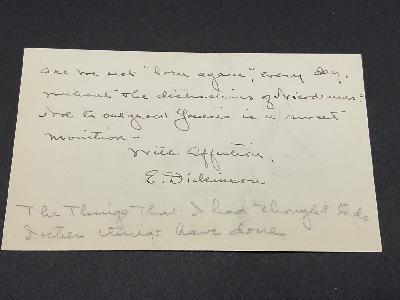 are we not "born again", every day,
without the distractions of Nicodemus-
Not to outgrow Genesis is a sweet
monition-
With Affection,
E. Dickinson.
The Things that I had thought to do
have done